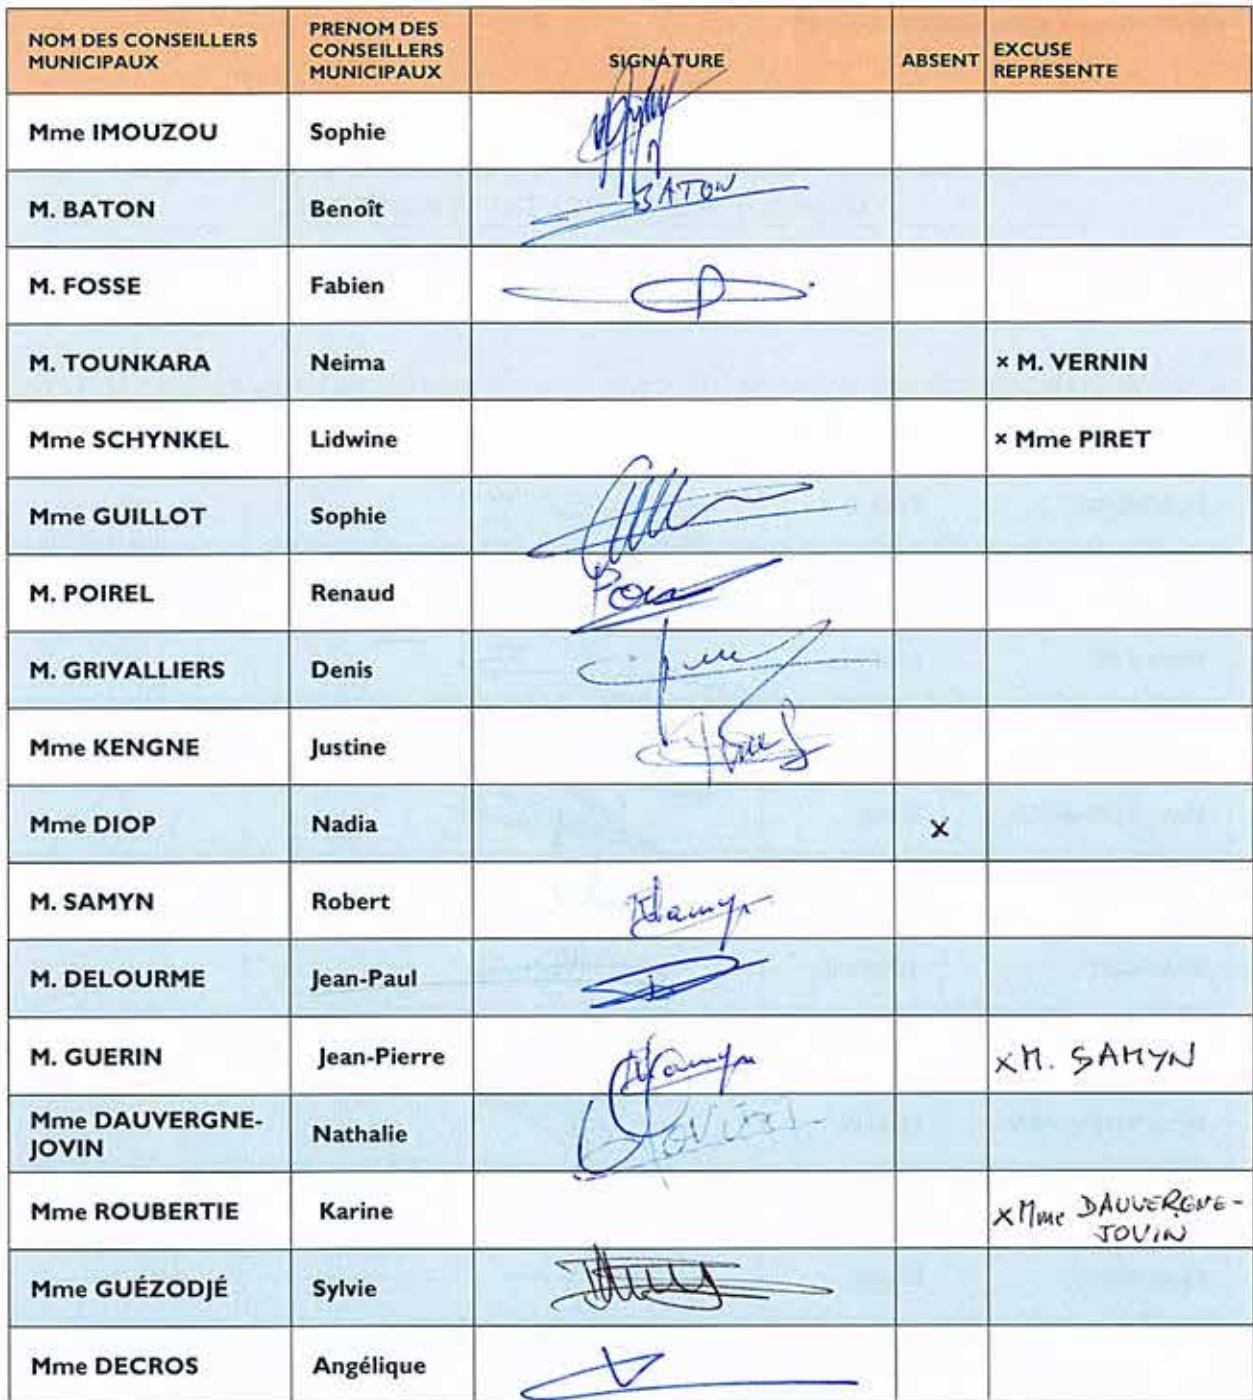 NOM DES CONSEILLERS MUNICIPAUX PRENOM DES CONSEILLERS MUNICIPAUX SIGNATURE ABSENT EXCUSE REPRESENTE
Mme IMOUZOU Sophie
M. BATON Benoît BATON
M. FOSSE Fabien
M. TOUNKARA Neima × M. VERNIN
Mme SCHYNKEL Lidwine × Mme PIRET
Mme GUILLOT Sophie
M. POIREL Renaud
M. GRIVALLIERS Denis
Mme KENGNE Justine
Mme DIOP Nadia ×
M. SAMYN Robert Samyn
M. DELOURME Jean-Paul
M. GUERIN Jean-Pierre Samyn ×M. SAMYN
Mme DAUVERGNE-
JOVIN Nathalie
Mme ROUBERTIE Karine ×Mme DAUVERGNE-
JOVIN
Mme GUÉZODJÉ Sylvie
Mme DECROS Angélique